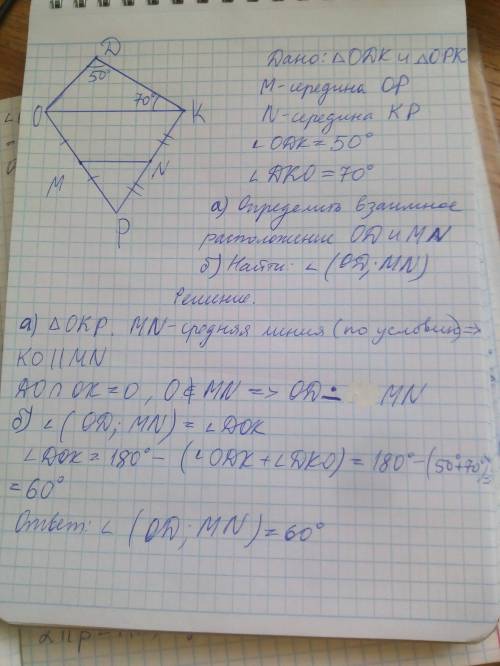 D
50°
70°
O
K
M
N
P
Дано: △ODK и △OPK
M-середина OP
N-середина KP
∠ODK = 50°
∠DKO = 70°
а) Определить взаимное
расположение OD и MN
б) Найти: ∠(OD; MN)
Решение.
а) △OKP. MN-средняя линия (по условию) =>
KO || MN
DO ∩ OK = O, O ∉ MN => OD ∸ MN
б) ∠(OD; MN) = ∠DOK
∠DOK = 180° - (∠ODK + ∠DKO) = 180° - (50° + 70°) =
= 60°
Ответ: ∠(OD; MN) = 60°